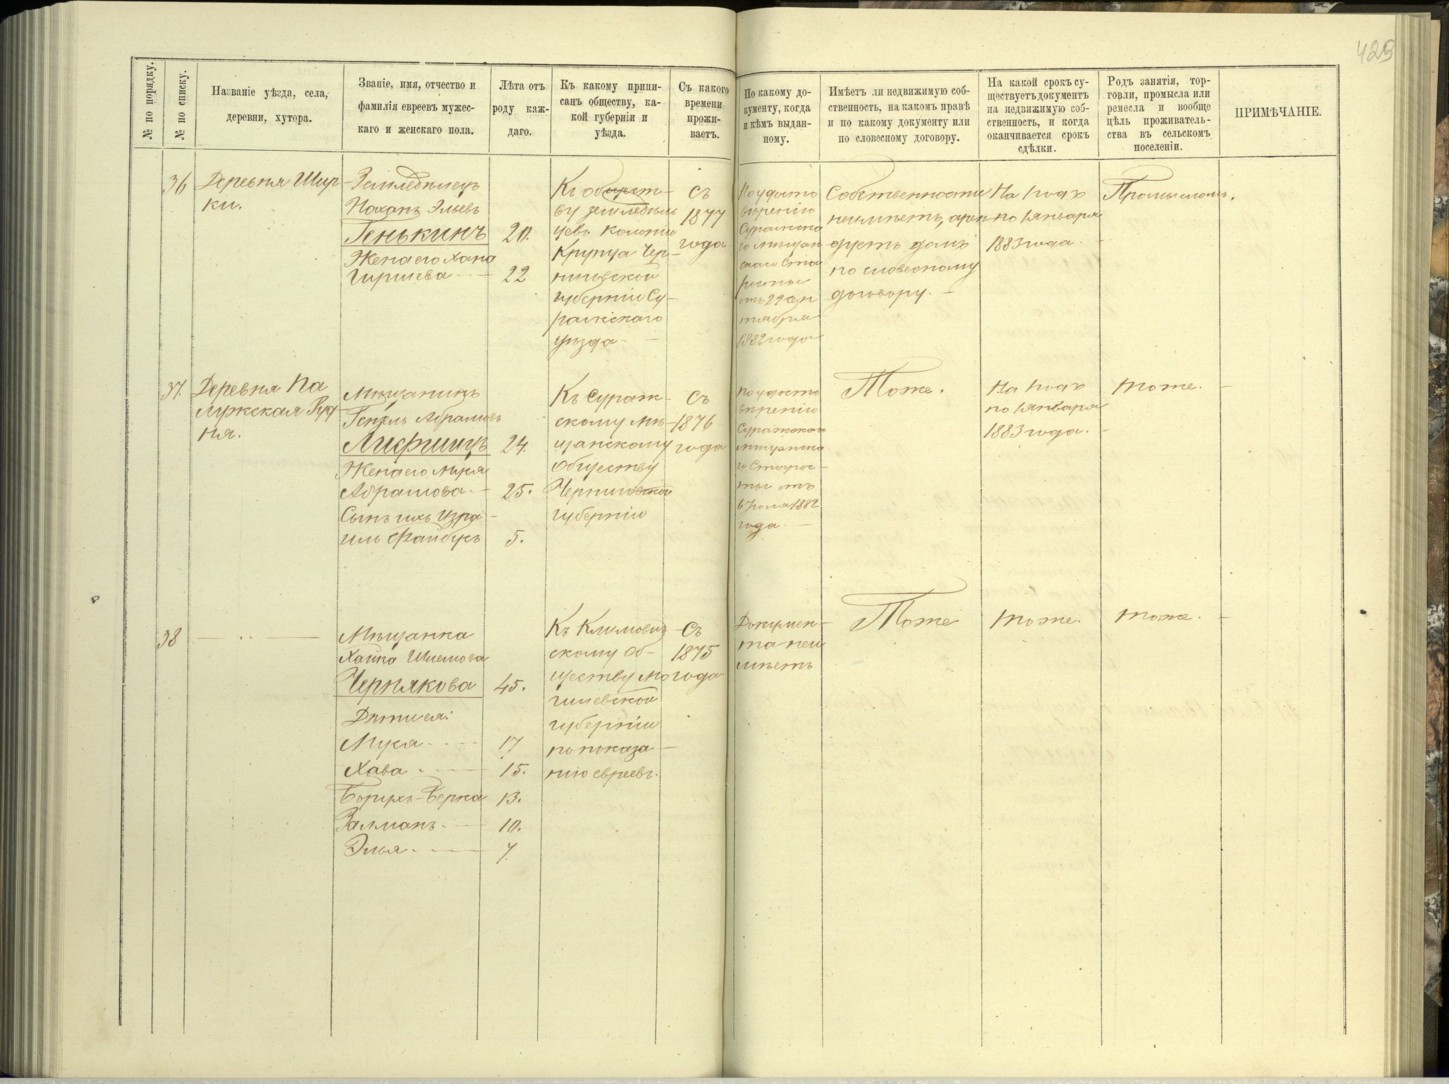 423
№ по порядку.
№ по списку.
Названіе уѣзда, села,
деревни, хутора.
Званіе, имя, отчество и
фамилія евреевъ мужес-
каго и женскаго пола.
Лѣта отъ
роду каж-
даго.
Къ какому припи-
санъ обществу, ка-
кой губерніи и
уѣзда.
Съ какого
времени
прожи-
ваетъ.
По какому до-
кументу, когда
и кѣмъ выдан-
ному.
Имѣетъ ли недвижимую соб-
ственность, на какомъ правѣ
и по какому документу или
по словесному договору.
На какой срокъ су-
ществуетъ документъ
на недвижимую соб-
ственность, и когда
оканчивается срокъ
сдѣлки.
Родъ занятія, тор-
говли, промысла или
ремесла и вообще
цѣль проживатель-
ства въ сельскомъ
поселеніи.
ПРИМѢЧАНІЕ.
36
Деревня Шир-
ки.
Земледѣлецъ
Нохамъ Эльевъ
Генькинъ
Жена его Хана
Гиршева
20.
22
Къ общест-
ву земледѣль
цевъ колоніи
Крупца Чер-
ниговской
губерніи Су-
ражскаго
уѣзда
Съ
1877
года
По удосто
вѣренію
Суражска
го мѣщан
скаго Ста
росты
отъ 22 Сен
тября
1882 года
Собственности
неимѣетъ, арен-
дуетъ домъ
по словесному
договору.
На годъ
по 1 января
1883 года.
Промысломъ.
37.
Деревня Ка
лужская Руд
ня.
Мѣщанинъ
Гендль Абрамовъ
Лифшицъ
Жена его Мера
Абрамова.
Сынъ ихъ Изра-
иль Файбусъ
24.
25.
5.
Къ Сураж-
скому мѣ-
щанскому
обществу
Черниговской
губерніи
Съ
1876
года
По удосто
вѣренію
Суражскаго
мѣщанска
го Старос-
ты отъ
6 Іюля 1882
года.
Тоже.
На годъ
по 1 января
1883 года.
тоже.
38
Мѣщанка
Хайка Шлемова
Чернякова
Дѣти ея:
Муся
Хава
Борухъ-Берка
Залманъ
Элья
45.
17
15.
13.
10.
7.
Къ Климович-
скому об-
ществу Мо
гилевской
губерніи
по показа
нію евреевъ.
Съ
1875
года
Докумен-
та неи
мѣетъ
Тоже
тоже.
тоже.